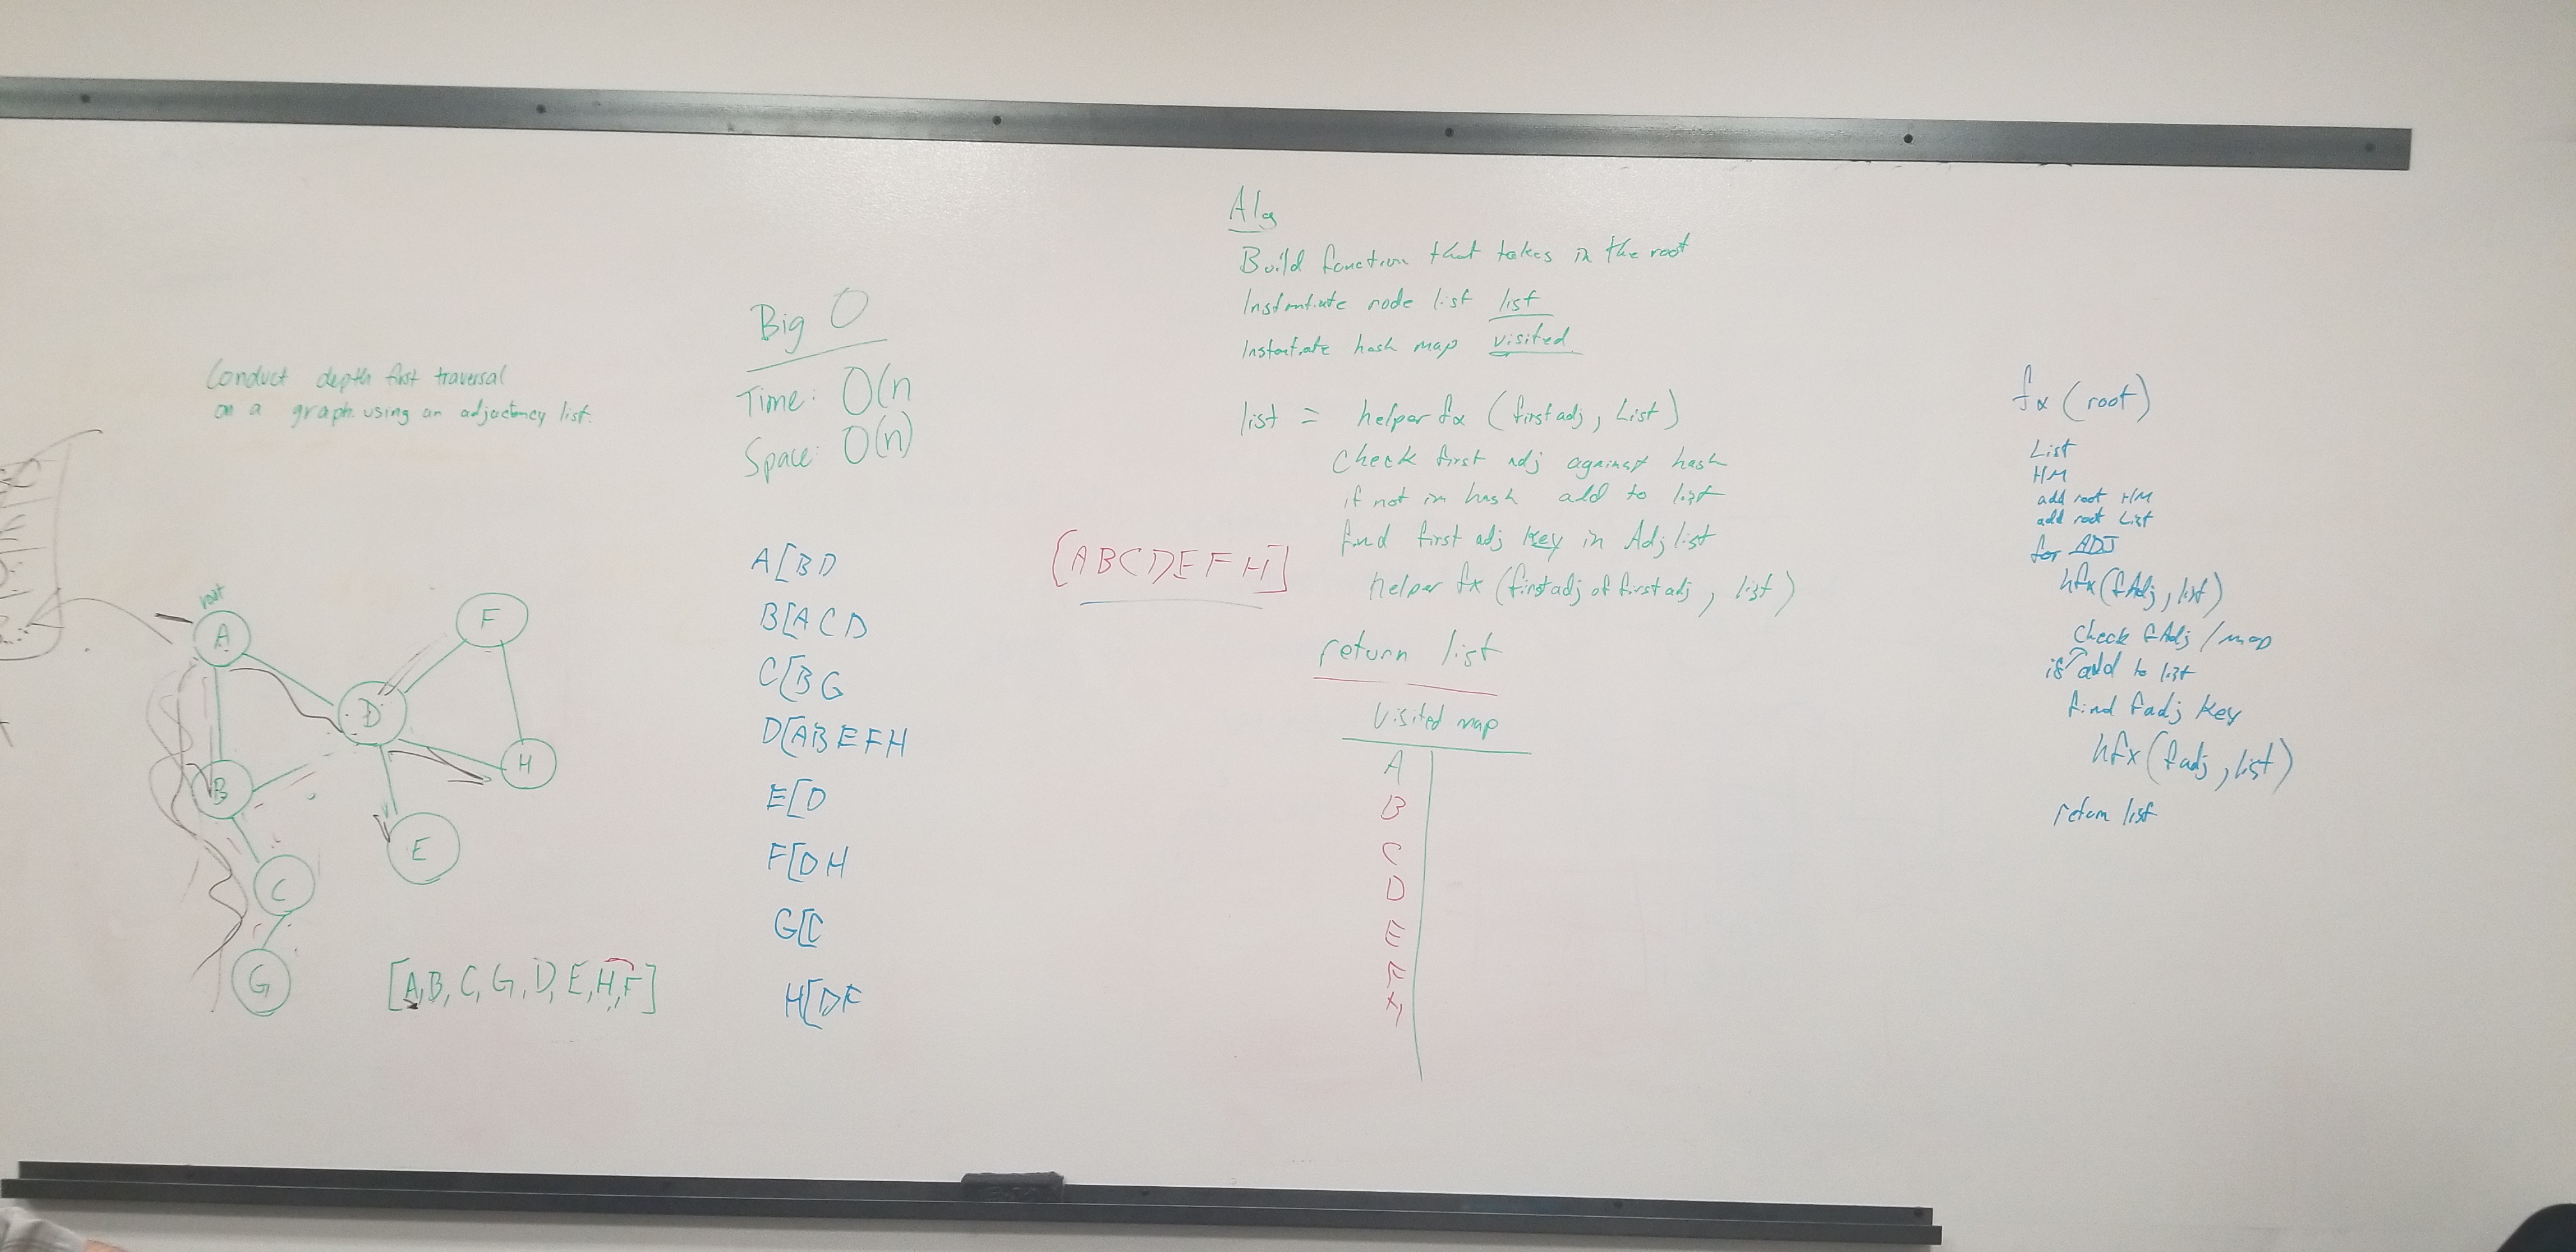 Conduct depth first traversal
on a graph using an adjacency list.
root
A
F
D
B
H
E
C
G
[A,B, C, G, D, E, H,F]
Big O
Time: O(n
Space: O(n)
A[BD
B[ACD
C[BG
D[ABEFH
E[D
F[DH
G[C
H[DF
[ABCDEFH]
Alg
Build function that takes in the root
Instantiate node list list
Instantiate hash map visited
list = helper fx (first adj, List)
Check first adj against hash
if not in hash add to list
find first adj key in Adj list
helper fx (first adj of first adj, list)
return list
Visited map
A
B
C
D
E
F
H
fx (root)
List
HM
add root HM
add root List
for ADJ
hfx (fAdj, list)
Check fAdj / map
if add to list
find fadj key
hfx (fadj, list)
return list